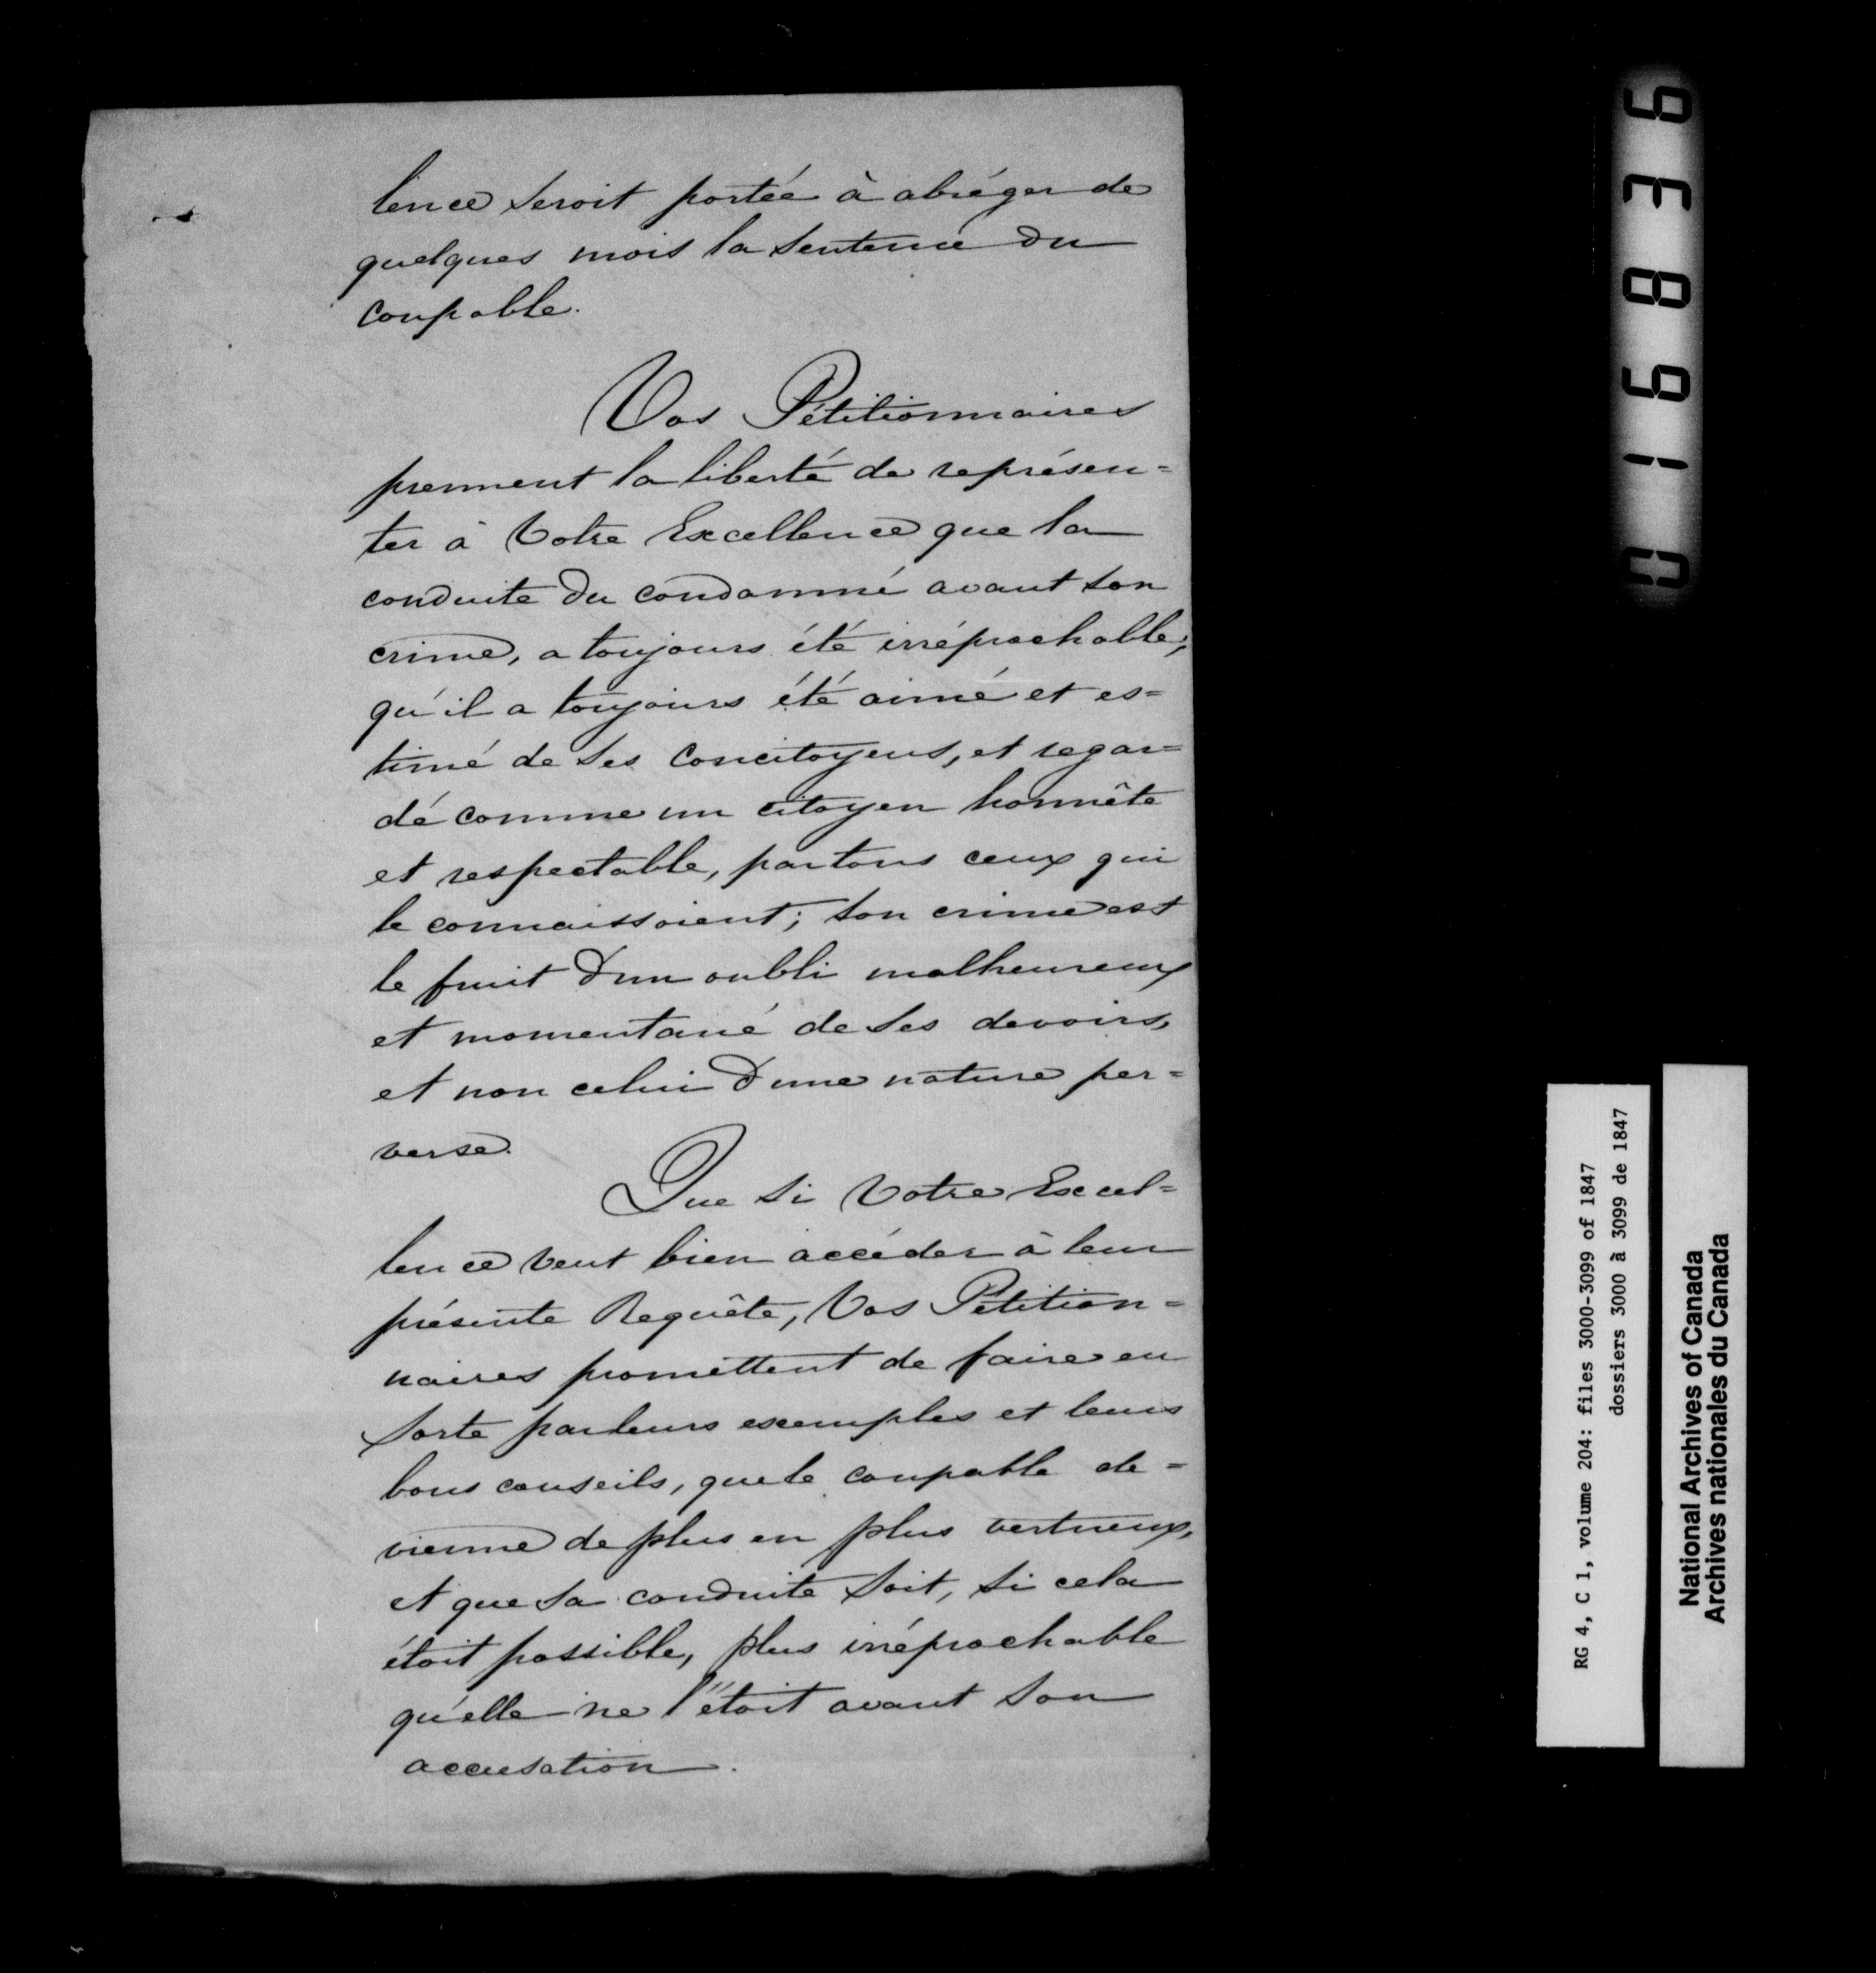 lence seroit portée à abréger de
quelques mois la sentence du
coupable.
Vos Pétitionnaires
prennent la liberté de représen=
ter à Votre Excellence que la
conduite du condamné avant son
crime, a toujours été irréprochable,
qu'il a toujours été aimé et es=
timé de ses concitoyens, et regar=
dé comme un citoyen honnête
et respectable, par tous ceux qui
le connaissoient; son crime est
le fruit d'un oubli malheureux
et momentané de ses devoirs,
et non celui d'une nature per=
verse.
Que si Votre Excel=
lence veut bien accéder à leur
présente Requête, Vos Pétition=
naires promettent de faire en
sorte par leurs exemples et leurs
bons conseils, que le coupable de=
vienne de plus en plus vertueux,
et que sa conduite soit, si cela
étoit possible, plus irréprochable
qu'elle ne l'étoit avant son
accusation.
016836
RG 4, C 1, volume 204: files 3000-3099 of 1847
dossiers 3000 à 3099 de 1847
National Archives of Canada
Archives nationales du Canada